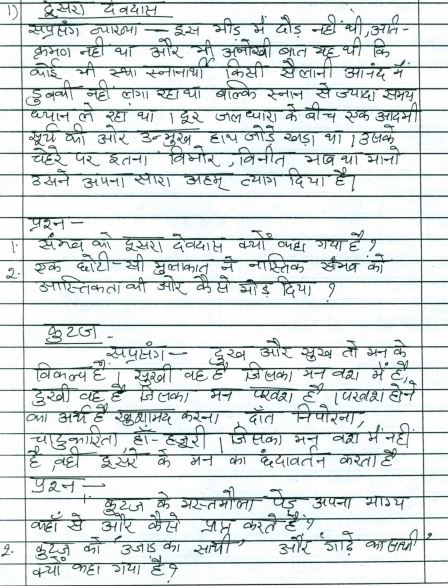 1) दूसरा देवदास
सप्रसंग व्याख्या — इस भीड़ में दौड़ नहीं थी, अति-
क्रमण नहीं था और भी अनोखी बात यह थी कि
कोई भी स्था स्नानार्थी किसी सैलानी आनंद में
डुबकी नहीं लगा रहा था बल्कि स्नान से ज्यादा समय
ध्यान ले रहा था । दूर जलधारा के बीच एक आदमी
सूर्य की ओर उन्मुख हाथ जोड़े खड़ा था । उसके
चेहरे पर इतना विभोर, विनीत भाव था मानो
उसने अपना सारा अहम् त्याग दिया है।
प्रश्न —
1. संभव को दूसरा देवदास क्यों कहा गया है ?
2. एक छोटी-सी मुलाकात ने नास्तिक संभव को
आस्तिकता की ओर कैसे मोड़ दिया ?
कुटज -
सप्रसंग — दुख और सुख तो मन के
विकल्प हैं । सुखी वह है जिसका मन वश में है,
दुखी वह है जिसका मन परवश है । परवश होने
का अर्थ है खुशामद करना, दाँत निपोरना,
चाटुकारिता, हाँ-हजूरी । जिसका मन वश में नहीं
है, वही दूसरे के मन का छंदावर्तन करता है
प्रश्न —
1. कुटज के मस्तमौला पेड़ अपना भोग्य
कहाँ से और कैसे प्राप्त करते हैं ?
2. कुटज को 'उजाड़ का साथी' और 'गाढ़े का साथी'
क्यों कहा गया है ?